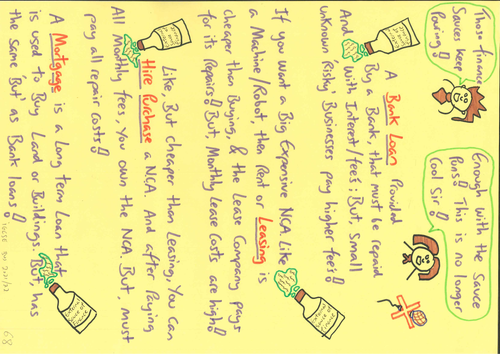 Those finance
Sauces keep
Pouring!
Enough with the Sauce
Puns! This is no longer
Cool Sir!
A Bank Loan Provided
By a Bank, that must be repaid
With Interest/fees; But, Small
And
unknown Risky Businesses pay higher fees!
If you want a Big Expensive NCA Like
a Machine/Robot, then Rent or Leasing is
cheaper than Buying, & the Lease Company pays
for its Repairs! But, Monthly Lease Costs are high!
Like, But cheaper than Leasing, You Can
Hire Purchase a NCA. And after Paying
All Monthly fees, you own the NCA. But, must
pay all repair costs!
A Mortgage is a Long term Loan that
is used to Buy Land or Buildings. But has
the same 'But' as Bank loans!
68